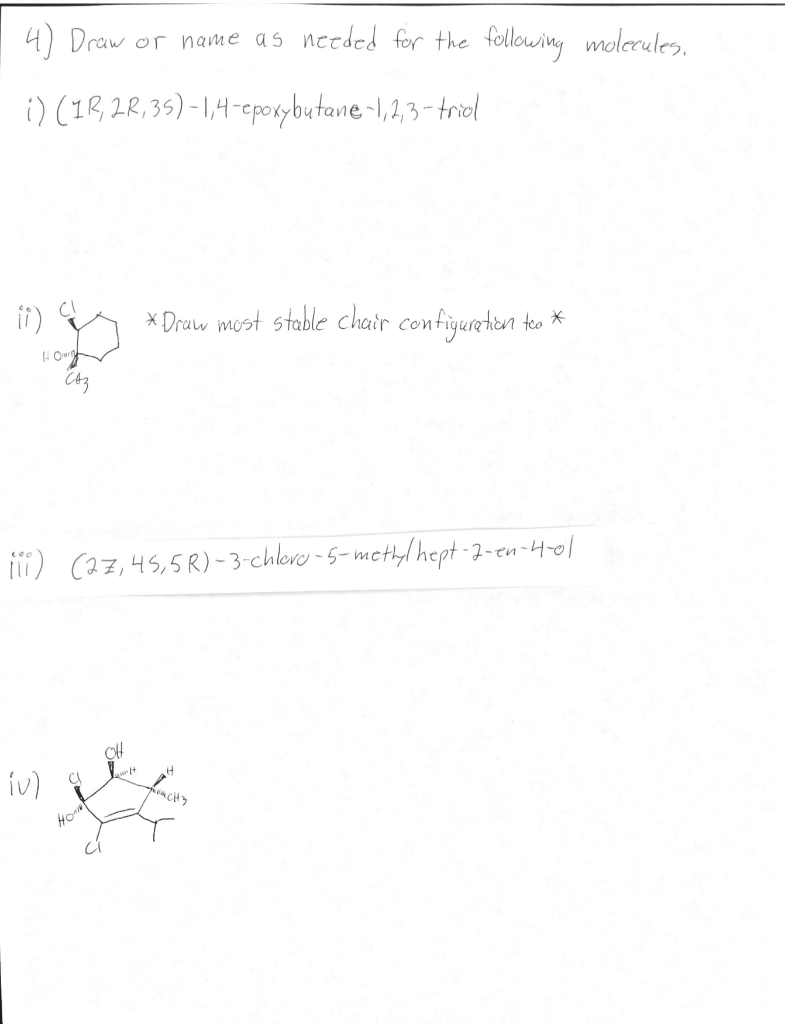 4) Draw or name as needed for the following molecules.
i) (1R, 2R, 3S)-1,4-epoxybutane-1,2,3-triol
ii) Cl
*Draw most stable chair configuration too*
HO
CH3
iii) (2Z, 4S, 5R)-3-chloro-5-methylhept-2-en-4-ol
OH
iv) Cl H H
CH3
HO
Cl